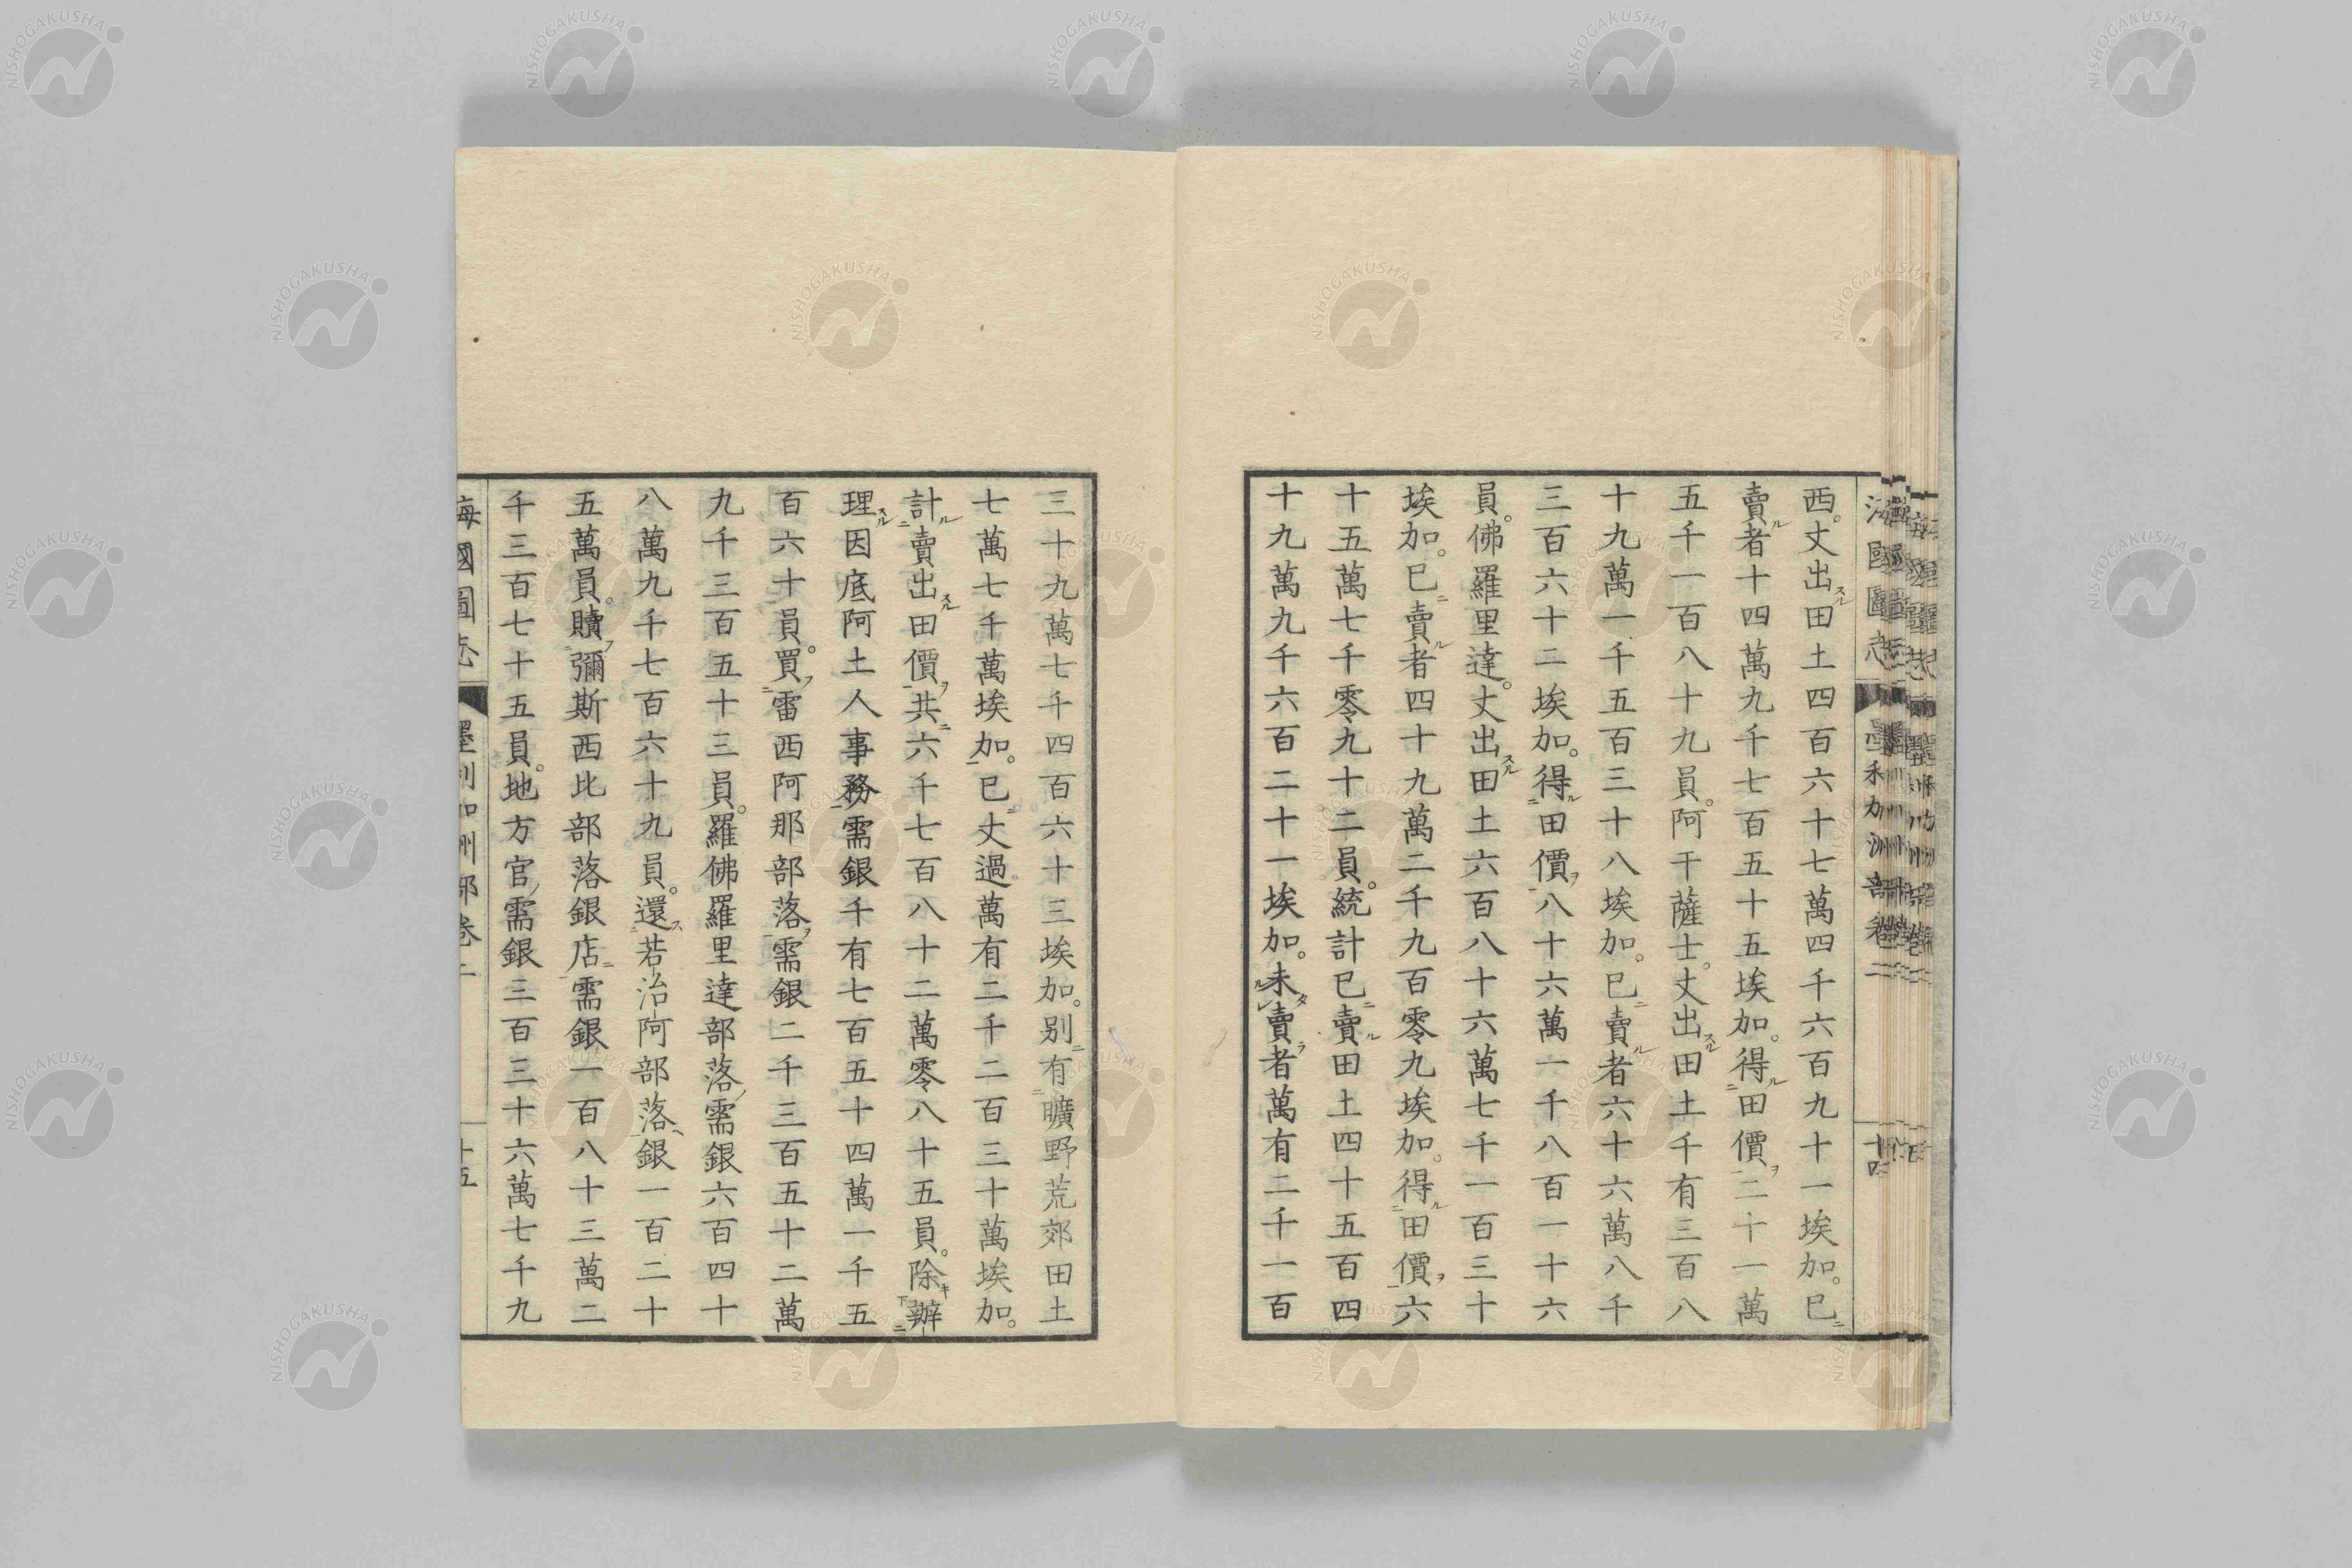 西。丈出田土四百六十七萬四千六百九十一埃加。已
賣者十四萬九千七百五十五埃加。得田價二十一萬
五千一百八十九員。阿干薩士。丈出田土千有三百八
十九萬一千五百三十八埃加。已賣者六十六萬八千
三百六十二埃加。得田價八十六萬一千八百一十六
員。佛羅里達。丈出田土六百八十六萬七千一百三十
埃加。已賣者四十九萬二千九百零九埃加。得田價六
十五萬七千零九十二員。統計已賣田土四十五百四
十九萬九千六百二十一埃加。未賣者萬有二千一百
三十九萬七千四百六十三埃加。別有曠野荒郊田土
七萬七千萬埃加。已丈過萬有二千二百三十萬埃加。
計賣出田價共六千七百八十二萬零八十五員。除辦
理因底阿土人事務需銀千有七百五十四萬一千五
百六十員。買雷西阿那部落需銀二千三百五十二萬
九千三百五十三員。羅佛羅里達部落需銀六百四十
八萬九千七百六十九員。還若治阿部落銀一百二十
五萬員。贖彌斯西比部落銀店需銀一百八十三萬二
千三百七十五員。地方官需銀三百三十六萬七千九
海國圖志 墨利加洲部卷二 十五
NISHOGAKUSHA